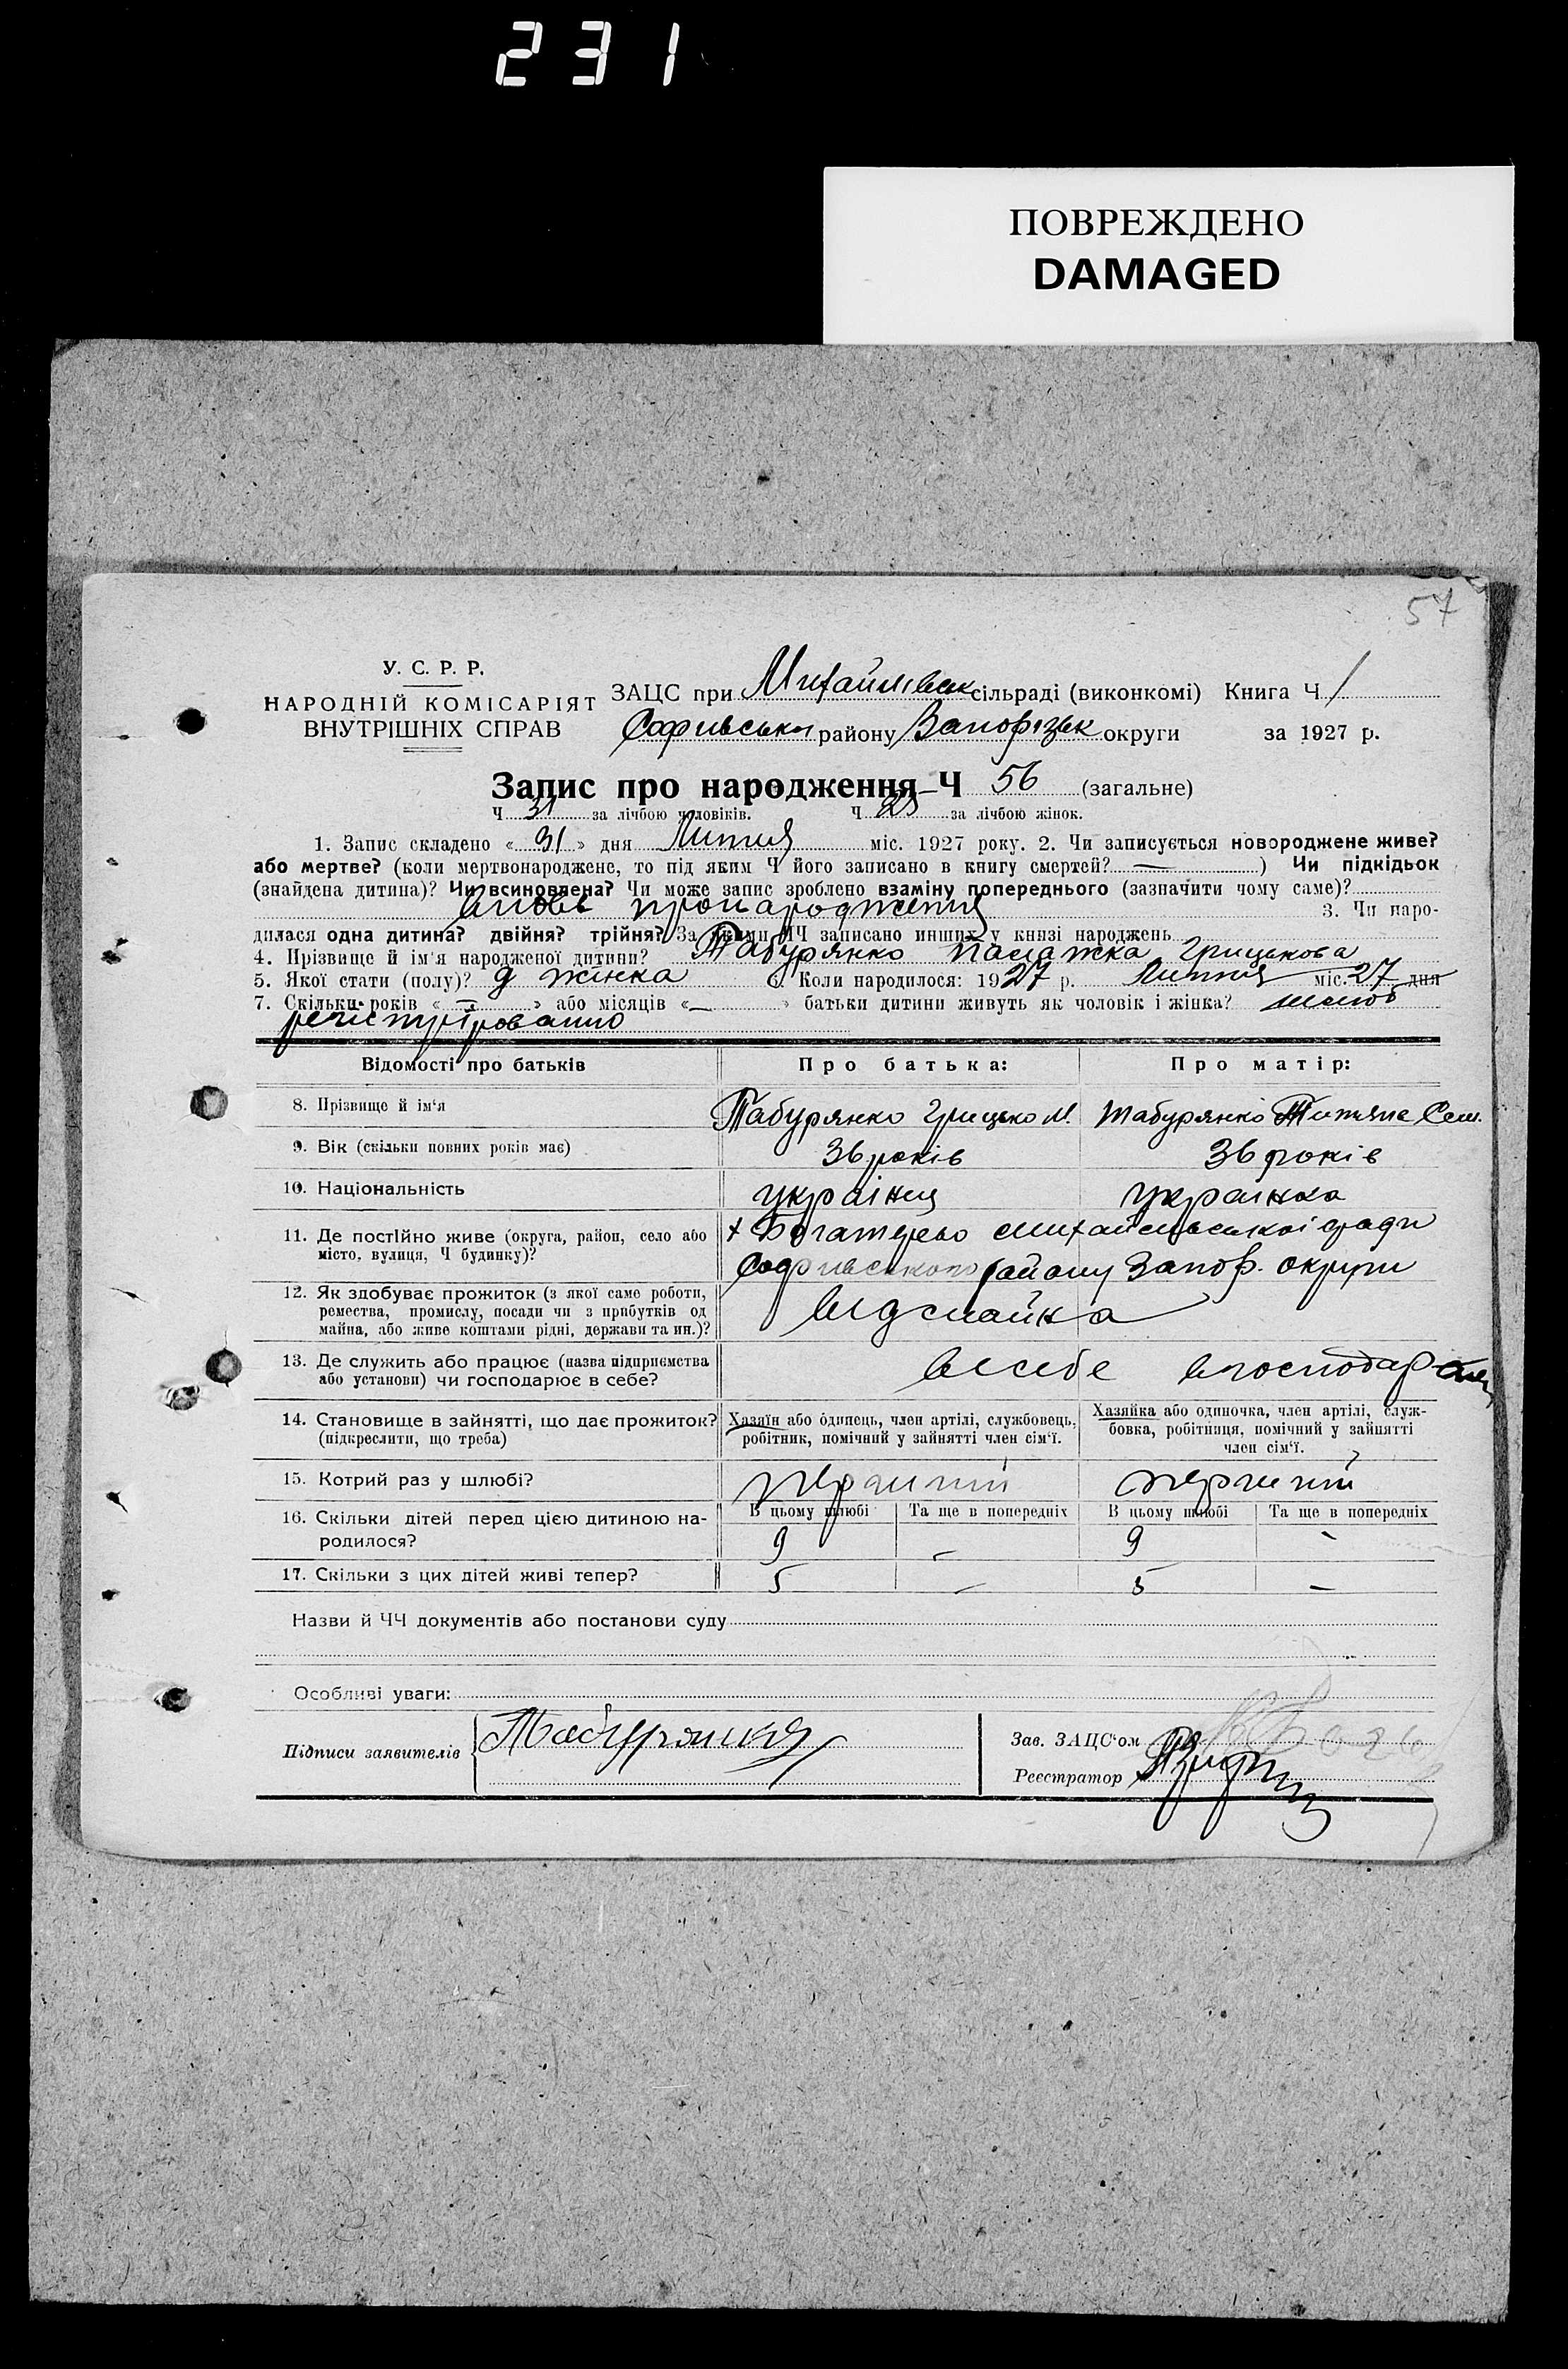 231
ПОВРЕЖДЕНО
DAMAGED
57
У. С. Р. Р.
НАРОДНІЙ КОМІСАРІЯТ
ВНУТРІШНІХ СПРАВ
ЗАЦС при Михайлівськ сільраді (виконкомі) Книга Ч 1
Софиевського району Запорізьк округи за 1927 р.
Запис про народження Ч 56 (загальне)
Ч 31 за лічбою чоловіків. Ч 25 за лічбою жінок.
1. Запис складено « 31 » дня Липня міс. 1927 року. 2. Чи записується новороджене живе?
або мертве? (коли мертвонароджене, то під яким Ч його записано в книгу смертей? — ) Чи підкідьок
(знайдена дитина)? Чи всиновлена? Чи може запис зроблено взаміну попереднього (зазначити чому саме)?
про народження 3. Чи наро-
дилася одна дитина? двійня? трійня? За якими ЧЧ записано инших у книзі народжень
4. Прізвище й ім'я народженої дитини? Табурянко Палажка Грицькова
5. Якої стати (полу)? жінка 6. Коли народилося: 1927 р. Липня міс. 27 дня
7. Скільки років « — » або місяців « — » батьки дитини живуть як чоловік і жінка? шлюб
регистріровано
Відомості про батьків Про батька: Про матір:
8. Прізвище й ім'я Табурянко Грицько М. Табурянко Сем.
9. Вік (скільки повних років має) 36 років 36 років
10. Національність українец українка
11. Де постійно живе (округа, район, село або
місто, вулиця, Ч будинку)?
х Богатырьо Михайлівської ради
Софиевського району Запор. округи
12. Як здобуває прожиток (з якої саме роботи,
ремества, промислу, посади чи з прибутків од
майна, або живе коштами рідні, держави та ин.)?
13. Де служить або працює (назва підприємства
або установи) чи господарює в себе?
всебе
14. Становище в зайнятті, що дає прожиток?
(підкреслити, що треба)
Хазяїн або одинець, член артілі, службовець,
робітник, помічний у зайнятті член сім'ї.
Хазяйка або одиночка, член артілі, служ-
бовка, робітниця, помічний у зайнятті
член сім'ї.
15. Котрий раз у шлюбі? перший перший
16. Скільки дітей перед цією дитиною на-
родилося?
В цьому шлюбі Та ще в попередніх В цьому шлюбі Та ще в попередніх
9 – 9 –
17. Скільки з цих дітей живі тепер? 5 – 5 –
Назви й ЧЧ документів або постанови суду
Особливі уваги:
Підписи заявителів
Зав. ЗАЦС'ом
Реєстратор